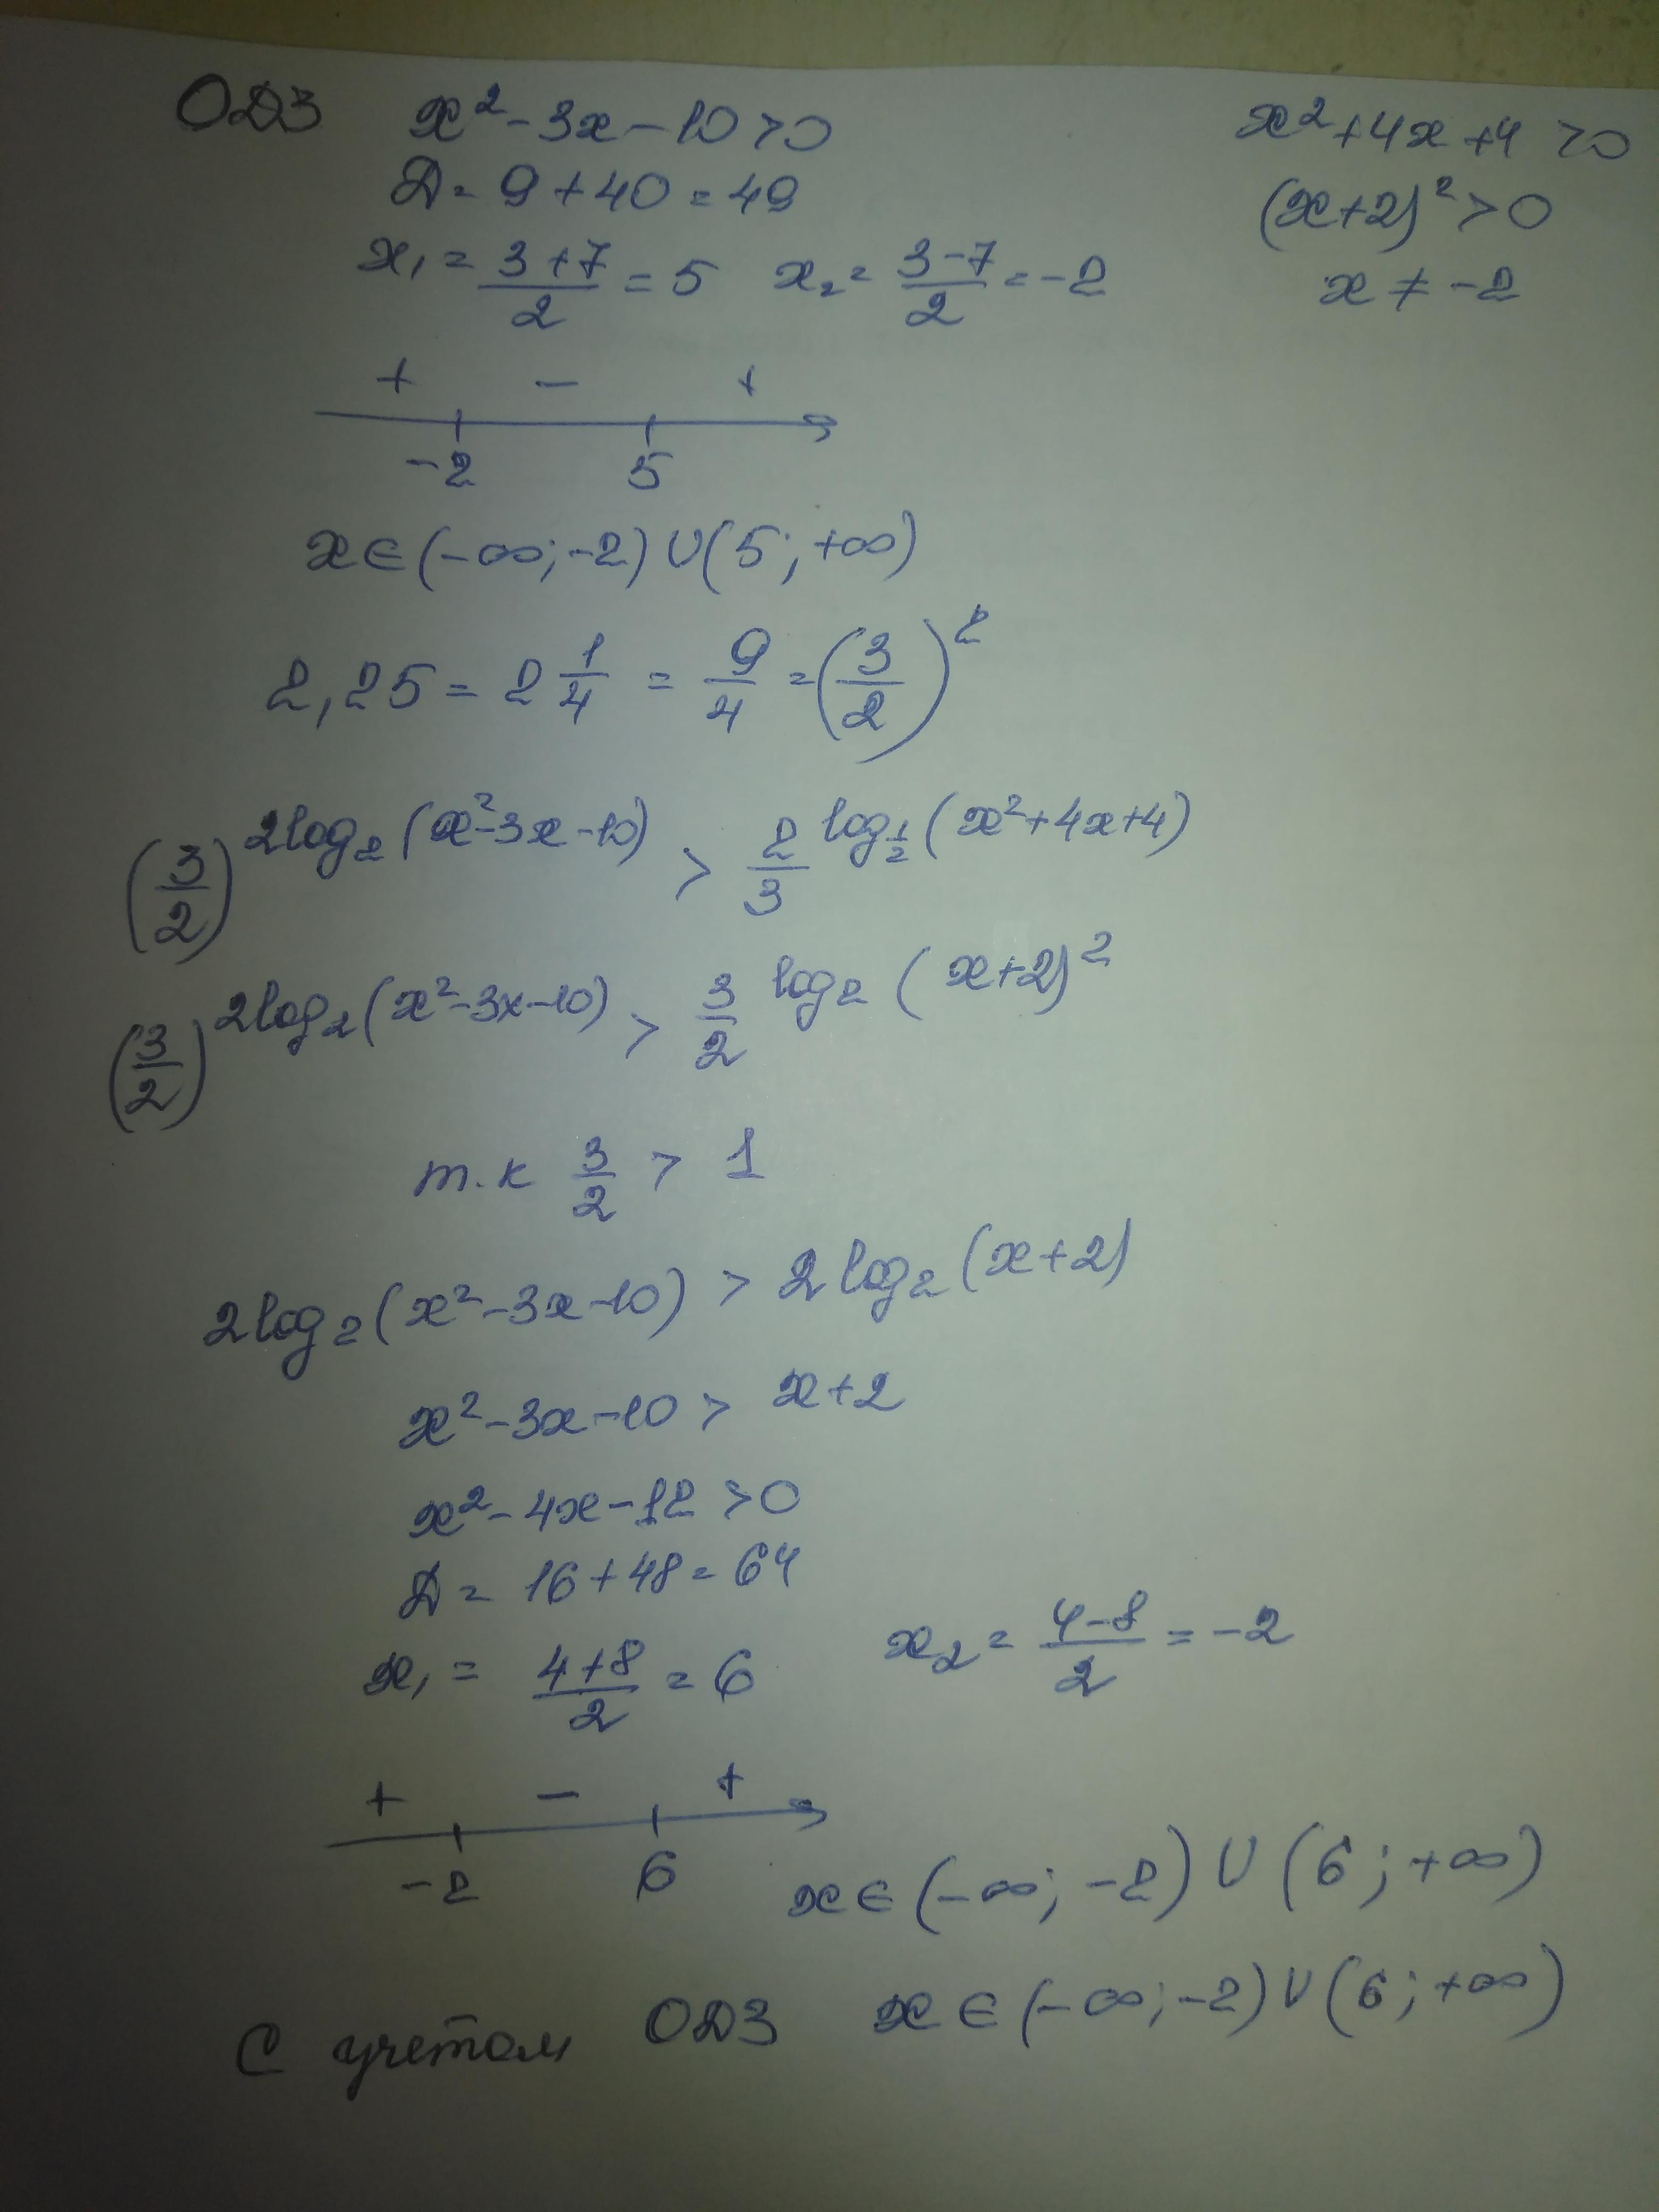 ОДЗ x² - 3x - 10 > 0 x² + 4x + 4 > 0
Д = 9 + 40 = 49 (x+2)² > 0
x₁ = (3+7)/2 = 5 x₂ = (3-7)/2 = -2 x ≠ -2
+ - +
-2 5
x ∈ (-∞; -2) ∪ (5; +∞)
2,25 = 2 1/4 = 9/4 = (3/2)²
(3/2)^(2log₂(x²-3x-10)) > 2/3^(log_(1/2)(x²+4x+4))
(3/2)^(2log₂(x²-3x-10)) > 3/2^(log₂(x+2)²)
т.к 3/2 > 1
2log₂(x²-3x-10) > 2log₂(x+2)
x² - 3x - 10 > x+2
x² - 4x - 12 > 0
Д = 16 + 48 = 64
x₁ = (4+8)/2 = 6 x₂ = (4-8)/2 = -2
+ - +
-2 6 x ∈ (-∞; -2) ∪ (6; +∞)
С учетом ОДЗ x ∈ (-∞; -2) ∪ (6; +∞)